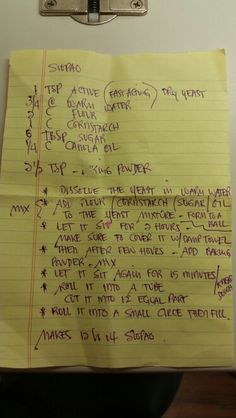 SIOPAO
1 TSP ACTIVE (FAST ACTING) DRY YEAST
3/4 C WARM WATER
2 C FLOUR
1 C CORNSTARCH
6 TBSP SUGAR
1/4 C CANOLA OIL
2 1/2 TSP POWDER
* DISSOLVE THE YEAST IN WARM WATER
MIX * ADD FLOUR / CORNSTARCH / SUGAR / OIL
TO THE YEAST MIXTURE - FORM TO A
* LET IT SIT FOR 2 HOURS - BALL
MAKE SURE TO COVER IT W/ DAMP TOWEL
* THEN AFTER FEW HOURS - ADD BAKING
POWDER - MIX
* LET IT SIT AGAIN FOR 15 MINUTES /
* ROLL IT INTO A TUBE
CUT IT INTO 12 EQUAL PART
* ROLL IT INTO A SMALL CIRCLE THEN FILL.
MAKES 12 14 SIOPAO